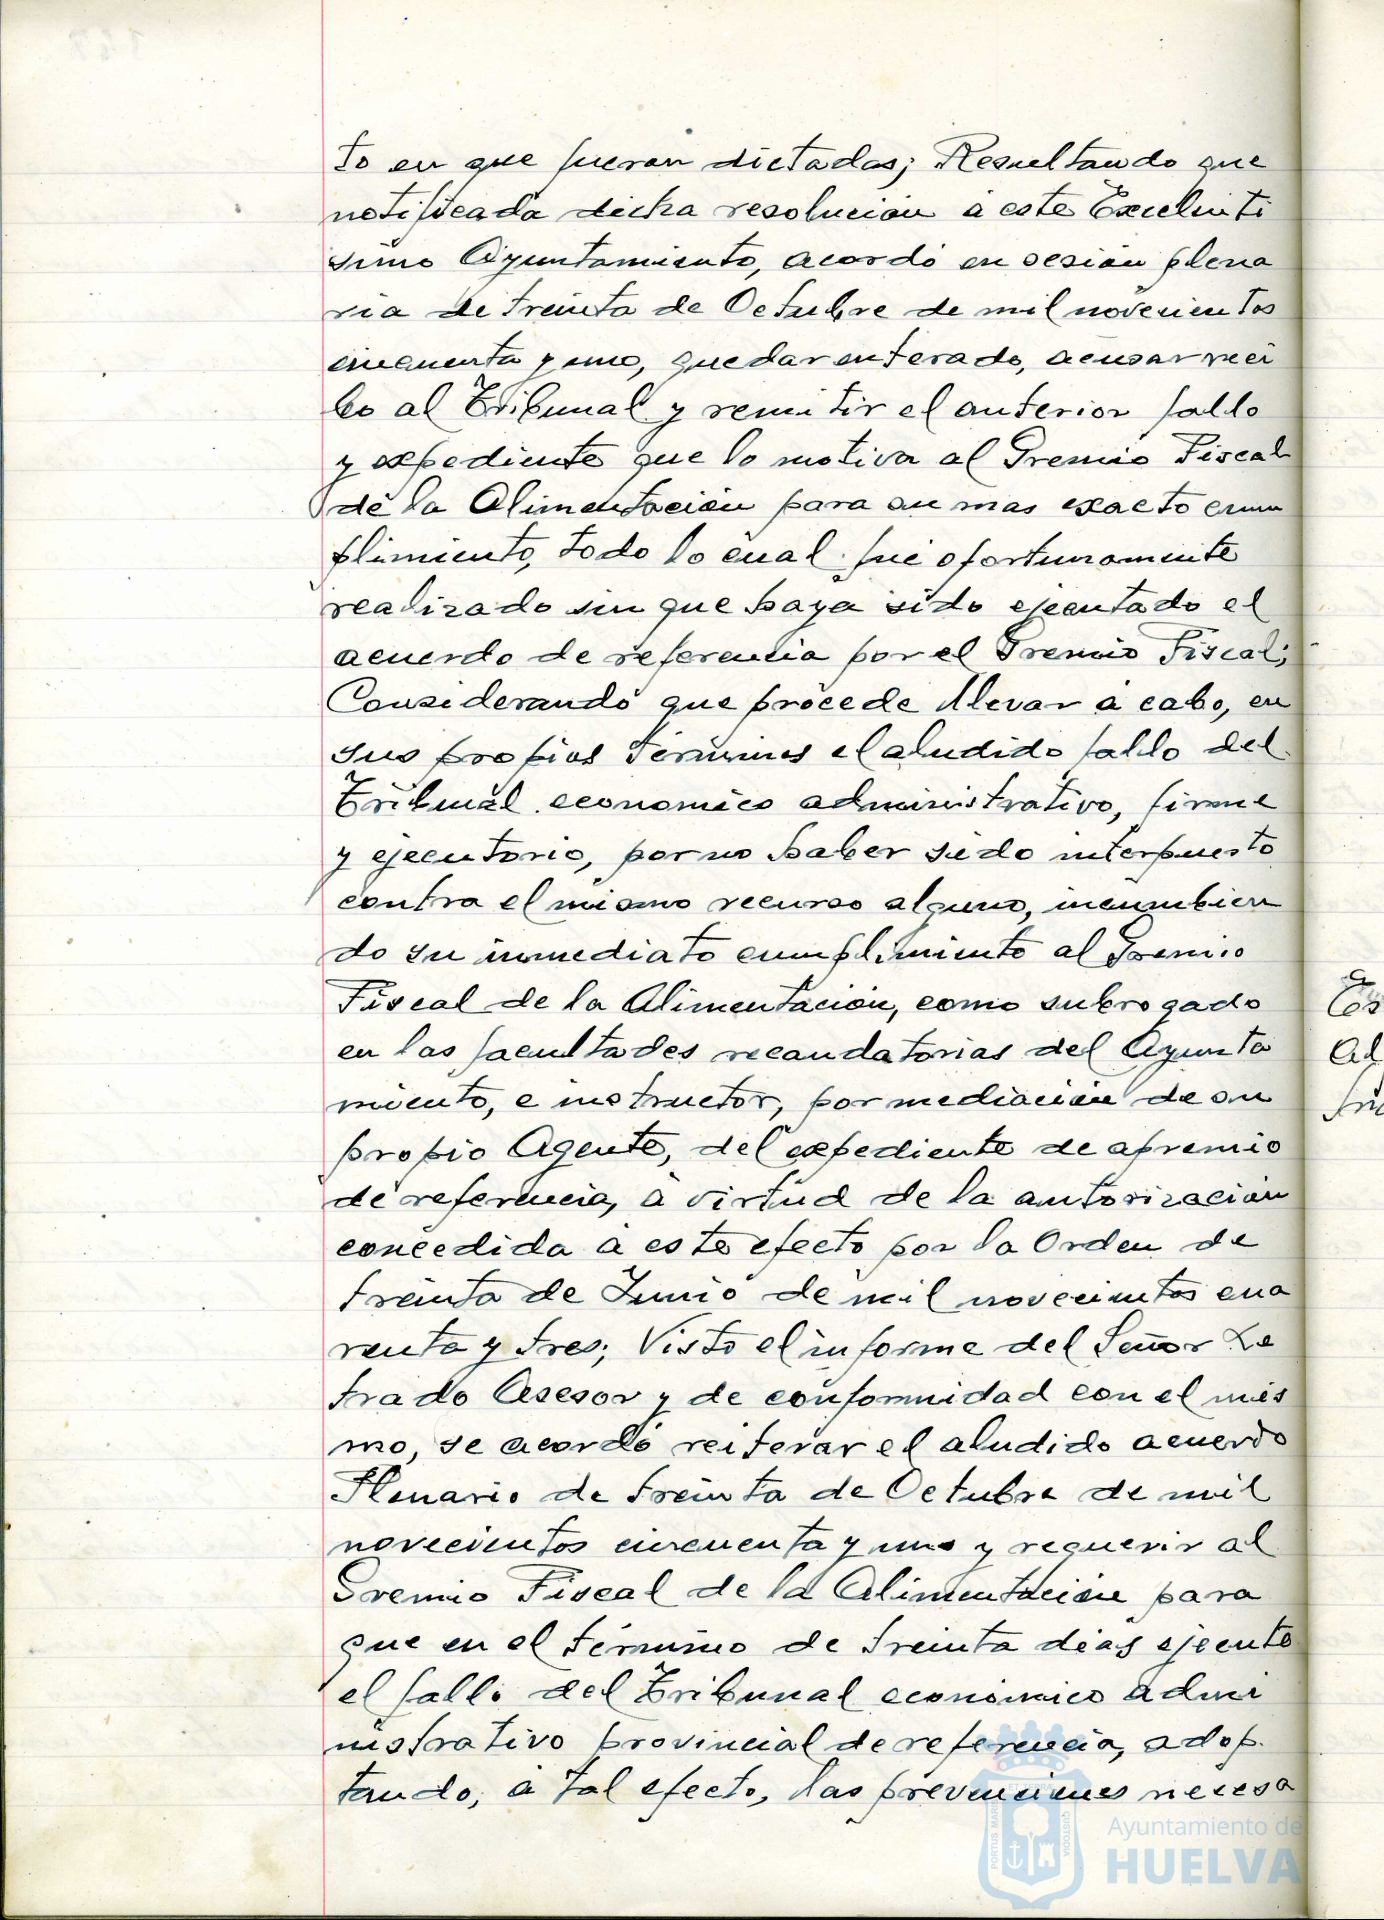 to en que fueron dictadas; Resultando que
notificada dicha resolución a este Excelenti
simo Ayuntamiento, acordó en sesión plena
ria de treinta de Octubre de mil novecientos
cincuenta y uno, quedar enterado, acusar reci
bo al Tribunal y remitir el anterior fallo
y expediente que lo motiva al Gremio Fiscal
de la Alimentación para su mas exacto cum
plimiento, todo lo cual fué oportunamente
realizado sin que haya sido ejecutado el
acuerdo de referencia por el Gremio Fiscal;
Considerando que procede llevar á cabo, en
sus propios términos el aludido fallo del
Tribunal economico administrativo, firme
y ejecutorio, por no haber sido interpuesto
contra el mismo recurso alguno, incumbien
do su inmediato cumplimiento al Gremio
Fiscal de la Alimentación, como subrogado
en las facultades recaudatorias del Ayunta
miento, e instructor, por mediación de su
propio Agente, del expediente de apremio
de referencia, á virtud de la autorización
concedida á este efecto por la Orden de
treinta de Junio de mil novecientos cua
renta y tres; Visto el informe del Señor Le
trado Asesor y de conformidad con el mis
mo, se acordó reiterar el aludido acuerdo
Plenario de treinta de Octubre de mil
novecientos cincuenta y uno y requerir al
Gremio Fiscal de la Alimentación para
que en el término de treinta dias ejecute
el fallo del Tribunal económico admi
nistrativo provincial de referencia, adop.
tando, á tal efecto, las prevenciones necesa
Ayuntamiento de
HUELVA